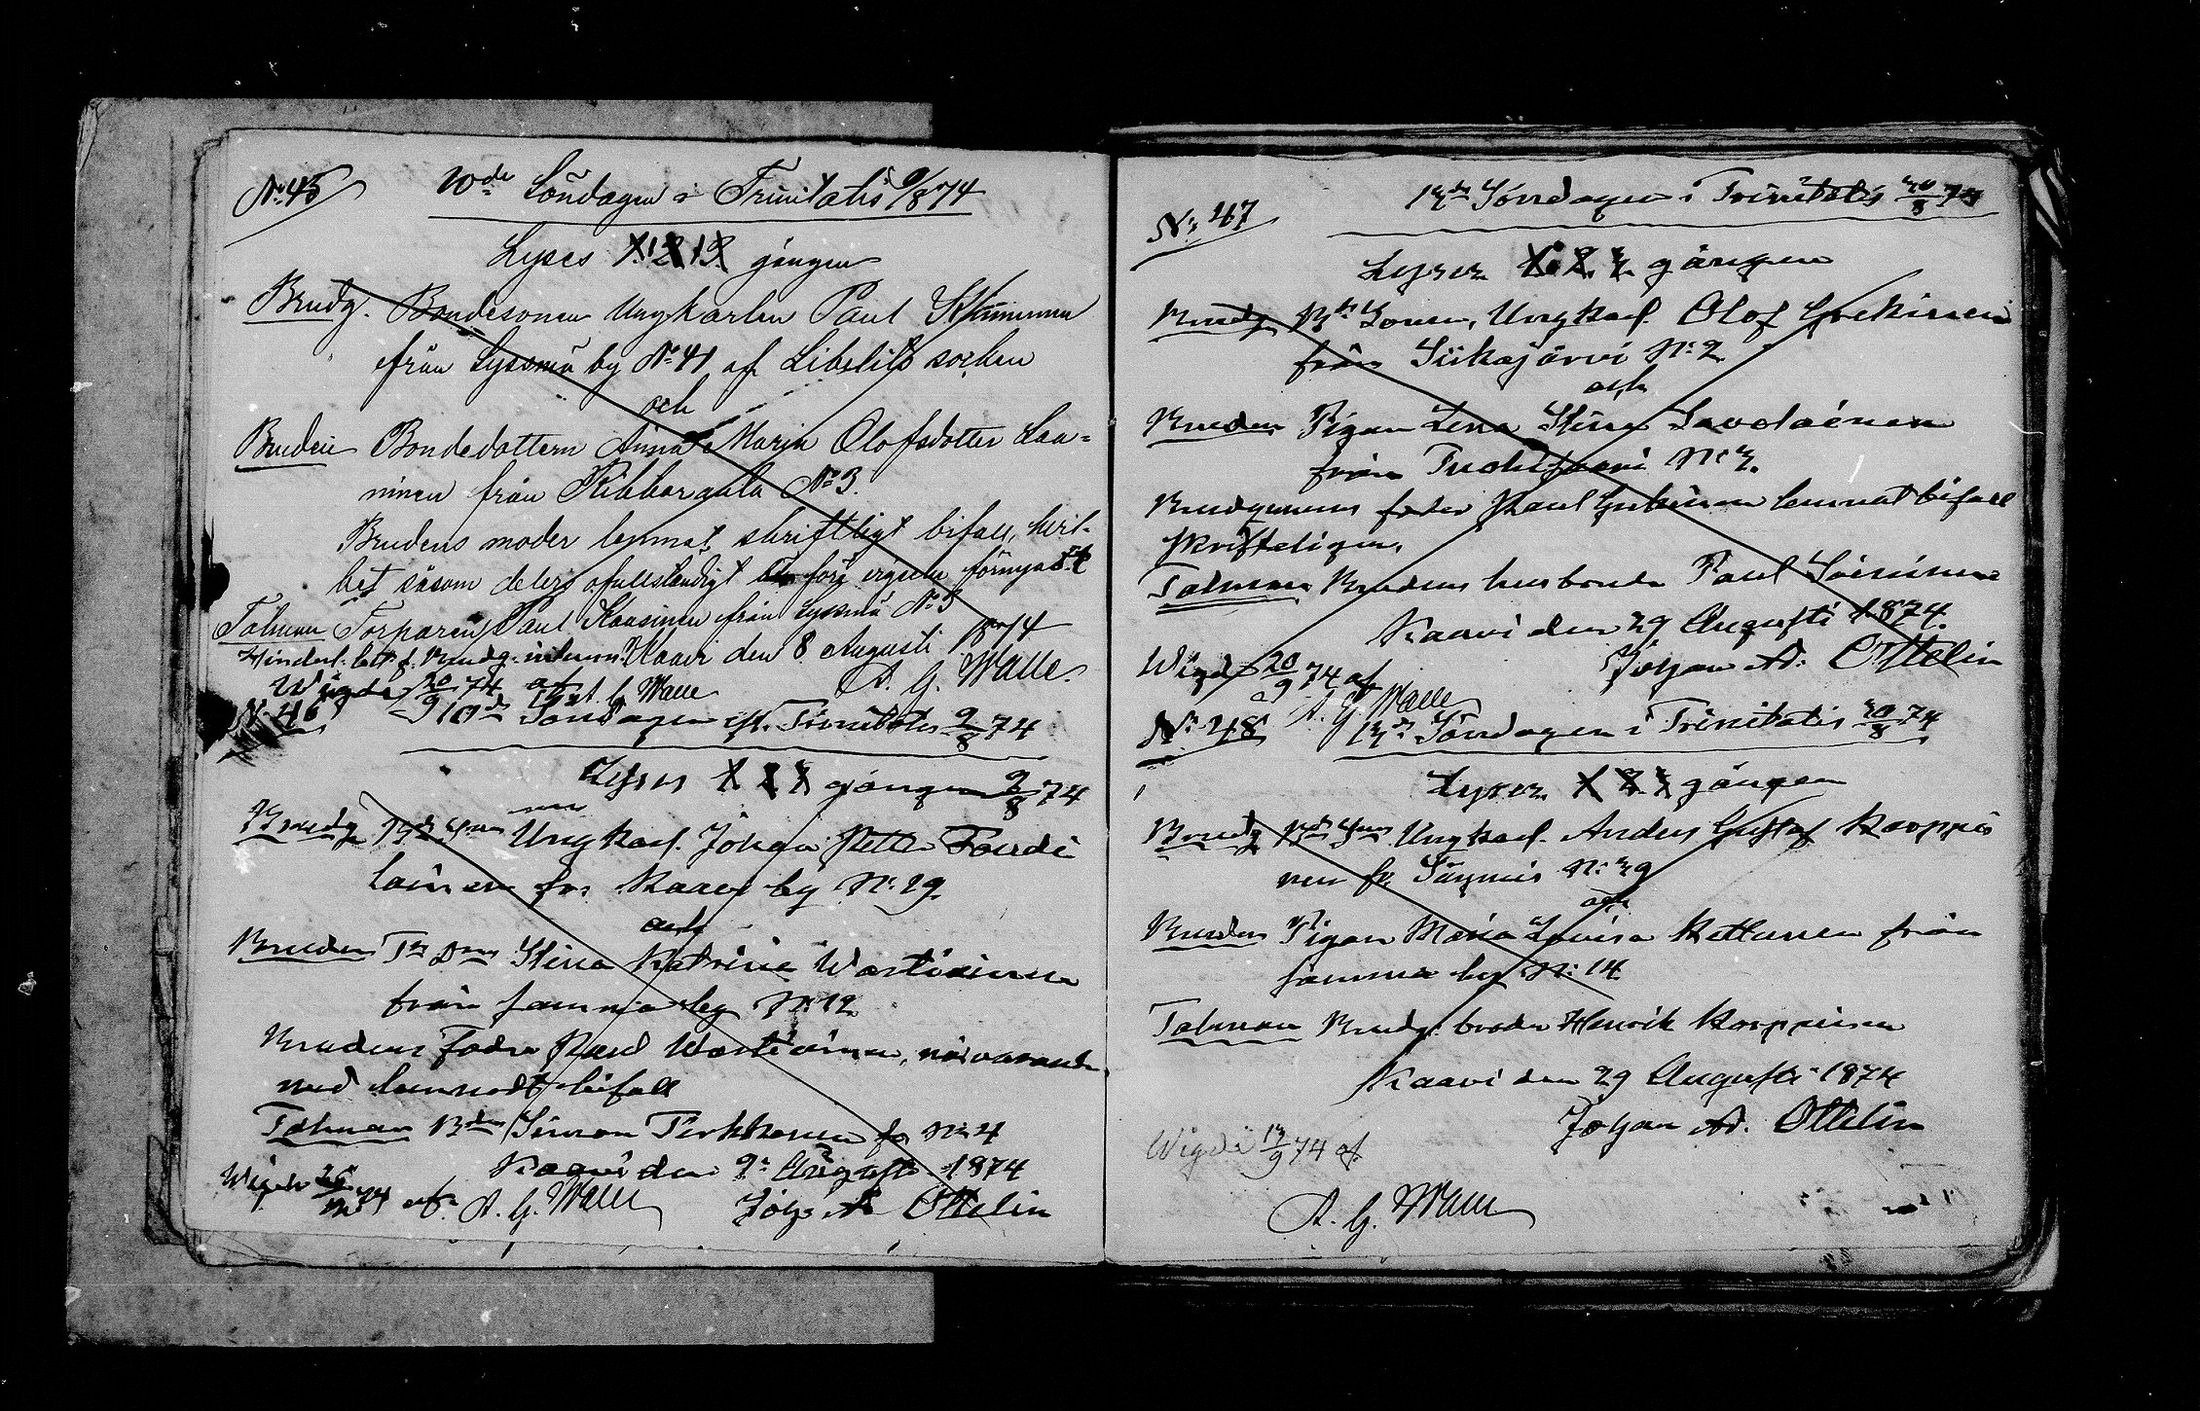 No 45
10de Söndagen i Trinitatis 9/8 74
Lyses 1. 2 13. gången
Brudg. Bondesonen Ungkarlen Paul
från Lyssmä by No 41 af Libelits socken
och
Bruden Bondedottern Anna Maria Olofsdotter Laa=
ninen från Ribborgala No 3.
Brudens moder lemnat skriftligt bifall, hvil-
ket såsom delers ofullständigt förnyas
Talman Torparen Paul från Lyssmä No 3
Hinderl. bet. f. Brudg. inlemn. Kaavi den 8 Augusti 1874
Wigde 20/9 74 af A. G. Walle A. G. Walle.
No 46
10de Söndagen eft. Trinitatis 9/8 74
Lyses 1 2 3 gången 9/8 74
Brudg Bd Son Ungkarl. Johan Petter Toudi
lainen fr. Kaavi by No 29
och
Bruden Tr Dn Stina Katrina Wartiainen
från samma by No 12
Brudens Fader Paul Wartiainen, närvarande
med lemnadt bifall
Talman Bden Simon Pirkkonen fr No 4
Kaavi den 9 Augusti 1874
Wigde 74 af A. G. Walle Joh. Ad Ottelin
No 47
13de Söndagen i Trinitatis 30/8 74
Lyses 1. 2. 3. gången
Brudg Bd Sonen, Ungkarl. Olof
från Siikajärvi No 2
och
Bruden Pigan Lena Stina Savolainen
från No 3.
Brudgumens fader Paul lemnat bifall
skrifteligen.
Talman Brudens husbonde Paul
Kaavi den 29 Augusti 1874.
Wigde 20/9 74 af Johan Ad. Ottelin
A. G. Walle
No 48
13de Söndagen i Trinitatis 30/8 74
Lyses 1 2. 3 gången
Brudg Bd Son Ungkarl. Anders Gustaf Koppi
nen fr. No 39
och
Bruden Pigan Maria Lovisa Kettunen från
samma by No 14
Talman Brudg. broder Henrik Koppinen
Kaavi den 29 Augusti 1874
Johan Ad. Ottelin
Wigde 13/9 74 af
A. G. Walle